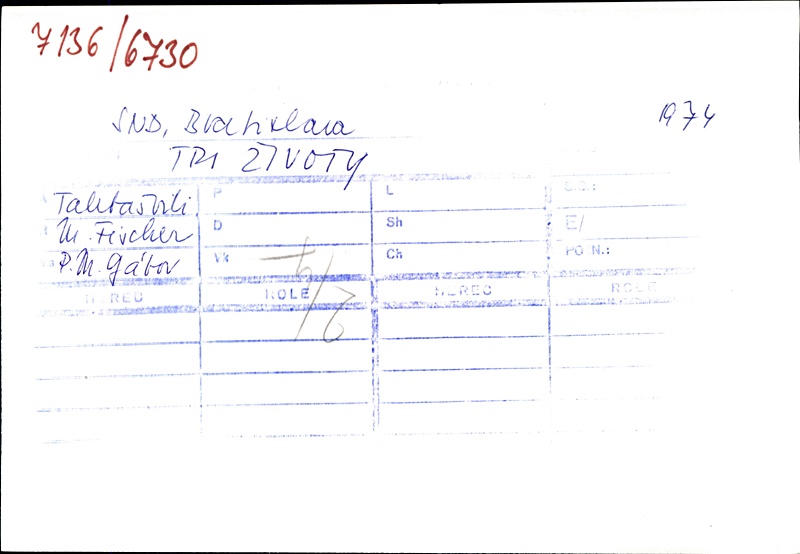 7136/6730
SND, Bratislava 1974
TRI ŽIVOTY
Taktašvili. P L
M. Fischer D Sh E/
P. M. Gábor Vk Ch PO N.:
HEREC ROLE HEREC ROLE